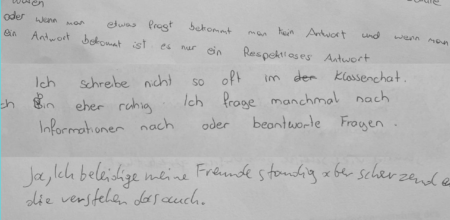 oder wenn man etwas fragt bekommt man kein Antwort und wenn man
ein Antwort bekomt ist es nur ein Respektloses Antwort
Ich schreibe nicht so oft im der Klassenchat.
ch Bin eher ruhig. Ich frage manchmal nach
Informationen nach oder beantworte Fragen.
Ja, Ich beleidige meine Freunde ständig aber scherzend
die verstehen das auch.